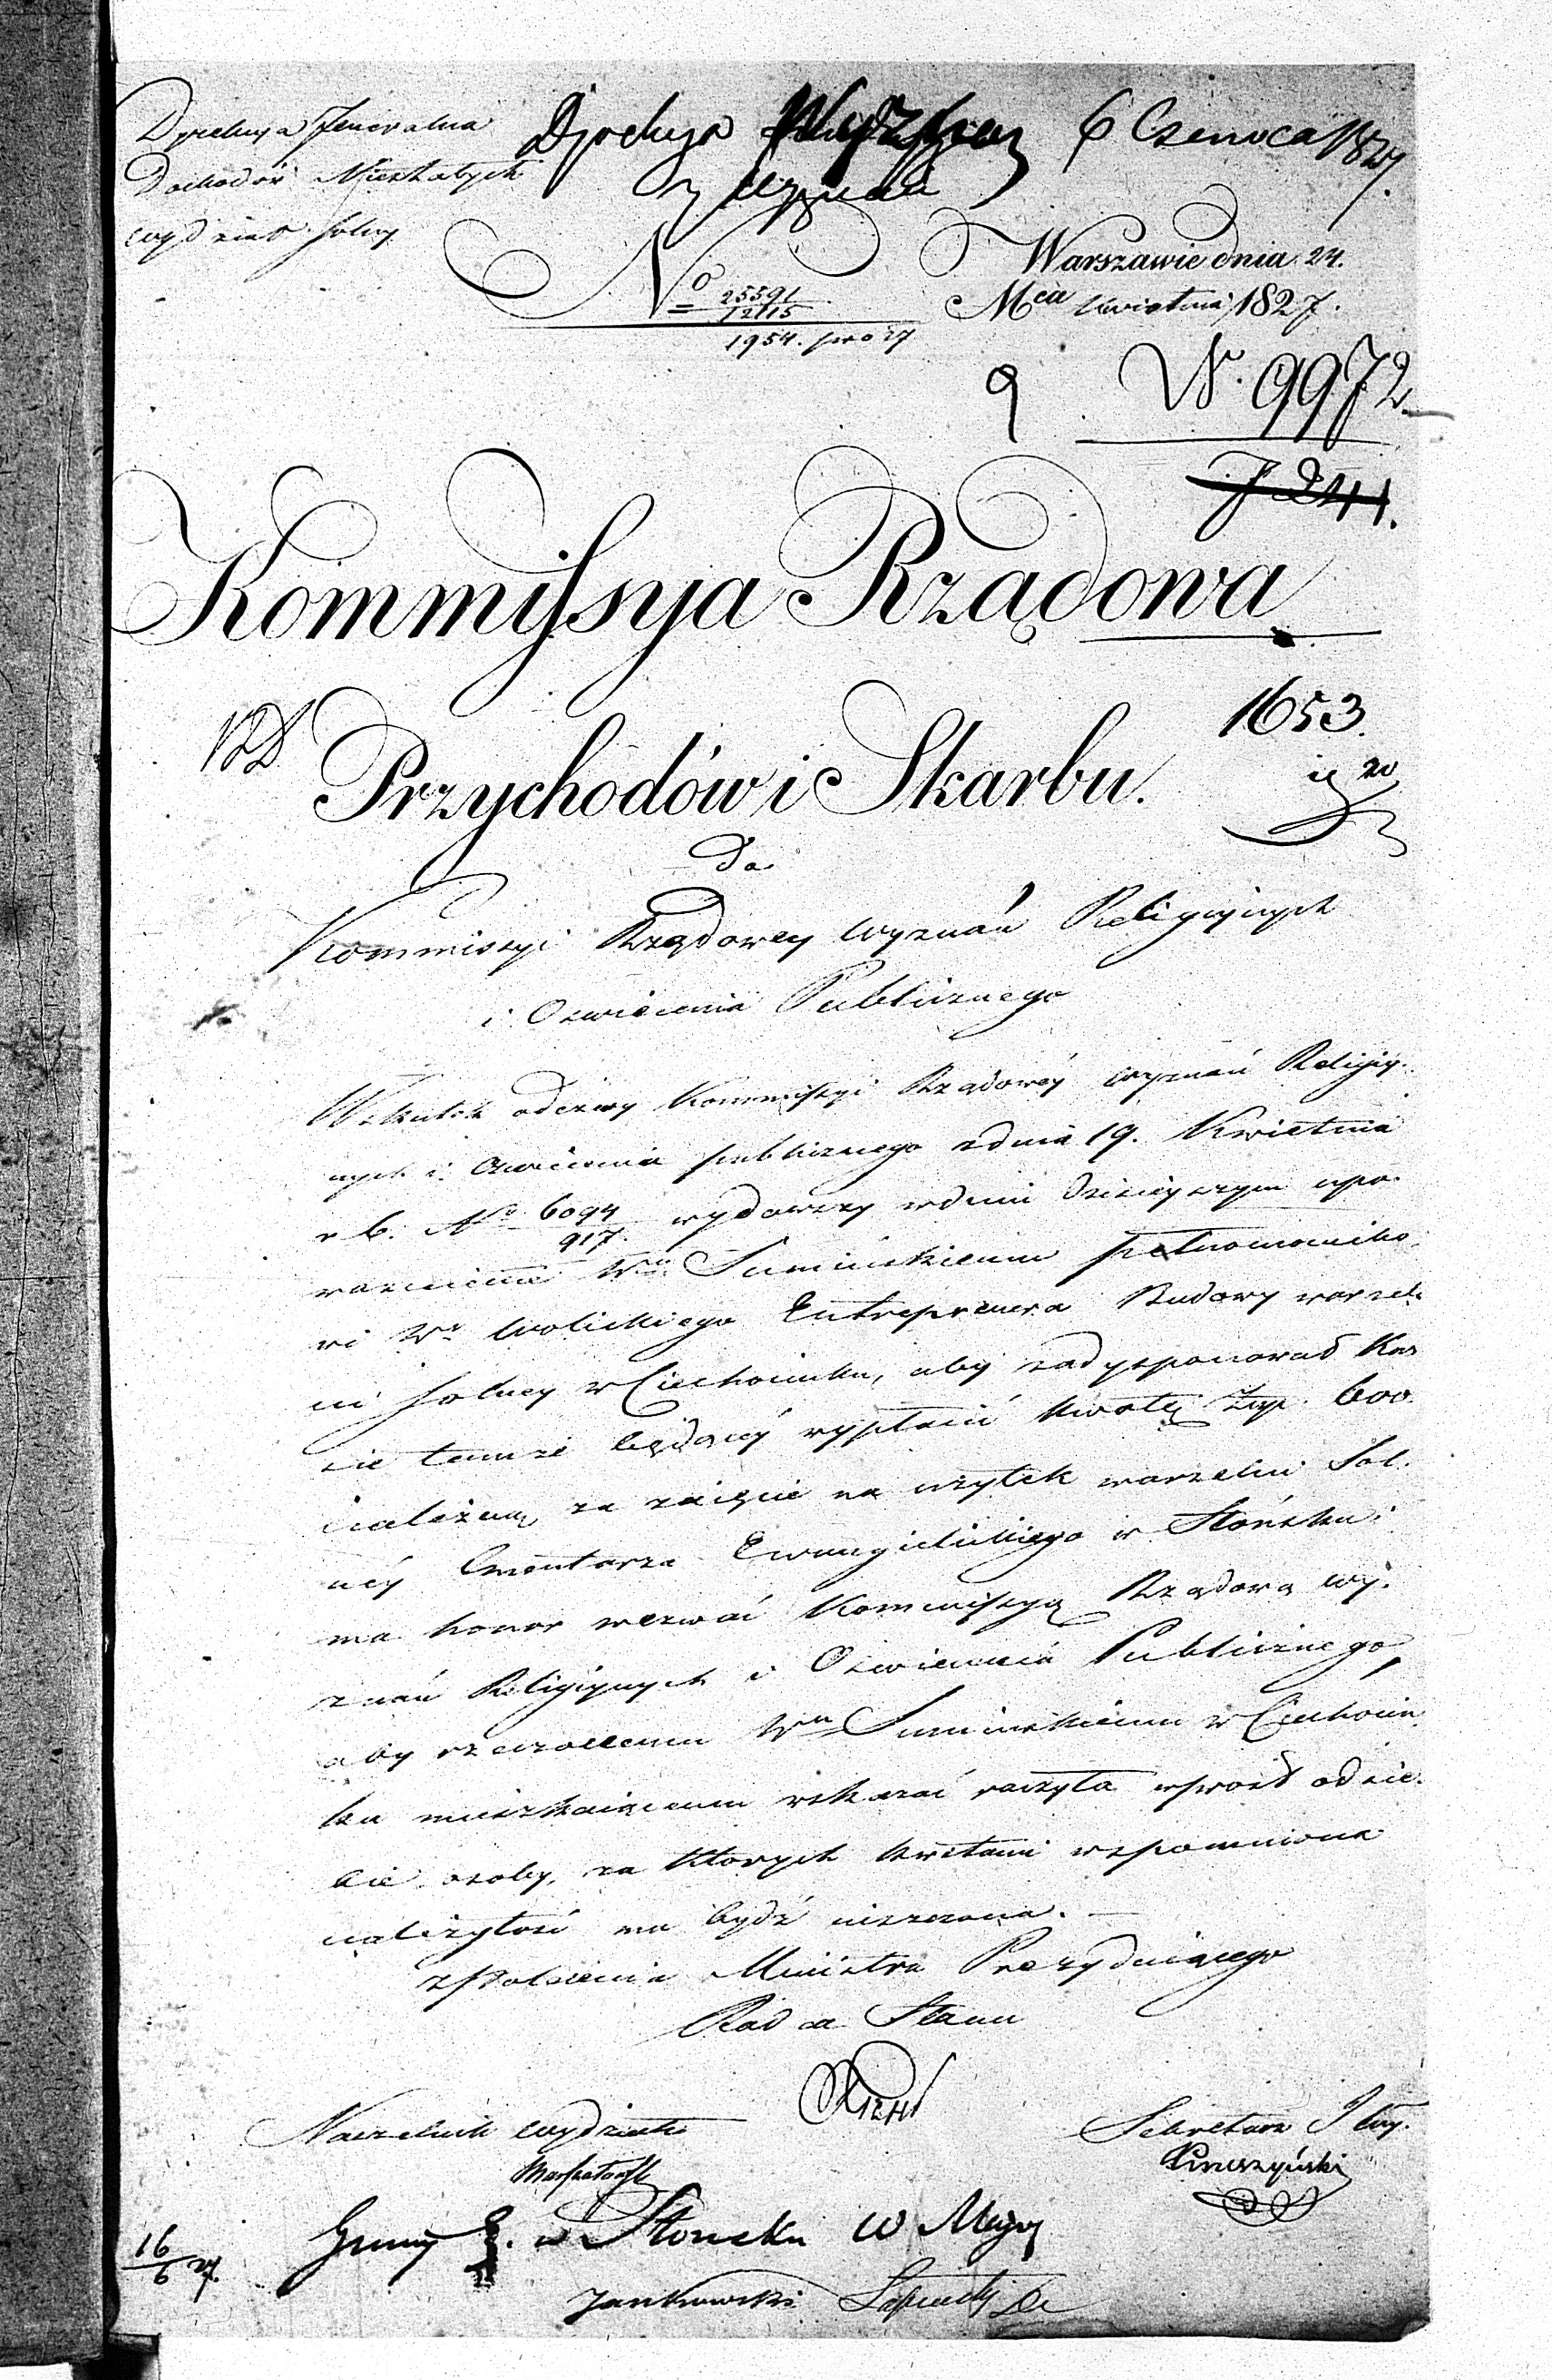 Dyrekcya Jeneralna
Dochodów Niestałych
Wydział Solny
Dyrekcya
6 Czerwca 1827.
z Wyznań
Warszawie dnia 24.
Mca Kwietnia 1827.
No 25591
12115
1954. pro 27
9 N. 9972
7241.
Kommissyia Rządowa
1653.
Przychodów i Skarbu.
Do
Kommissyi Rządowey Wyznań Religiynych
i Oswiecenia Publicznego
Wskutek odezwy Kommissyi Rządowéy Wyznań Religiy-
nych i Oswiecenia publicznego z dnia 19. Kwietnia
r b. No 6094/917. wydawszy w dniu dzisieyszym upo-
waznienie Wu Sumińskiemu pełnomocniko-
wi Wo Wolickiego Entreprenera Budowy warzel-
ni solney w Ciechocinku, aby zadysponował Kas-
sie temuże będącéy wypłacić kwotę Złp. 600.
należną za zaięcie na użytek warzelni Sol-
néy Cmentarza Ewangielickiego w Słońsku;
ma honor wezwać Kommissyą Rządową Wy-
znań Religiynych i Oswiecenia Publicznego,
aby rzeczonemu Wu Sumińskiemu w Ciechocin-
ku mieszkaiącemu wskazać raczyła wprost od sie-
bie osoby, za ktorych kwitami wspomniona
należytość ma bydź uiszczona.
z polecenia Ministra Prezyduiącego
Radca Stanu
Naczelnik Wydziału
Sekretarz J lny.
16/6 27.
Gminy E. w Słonsku W Maz
Jankowski